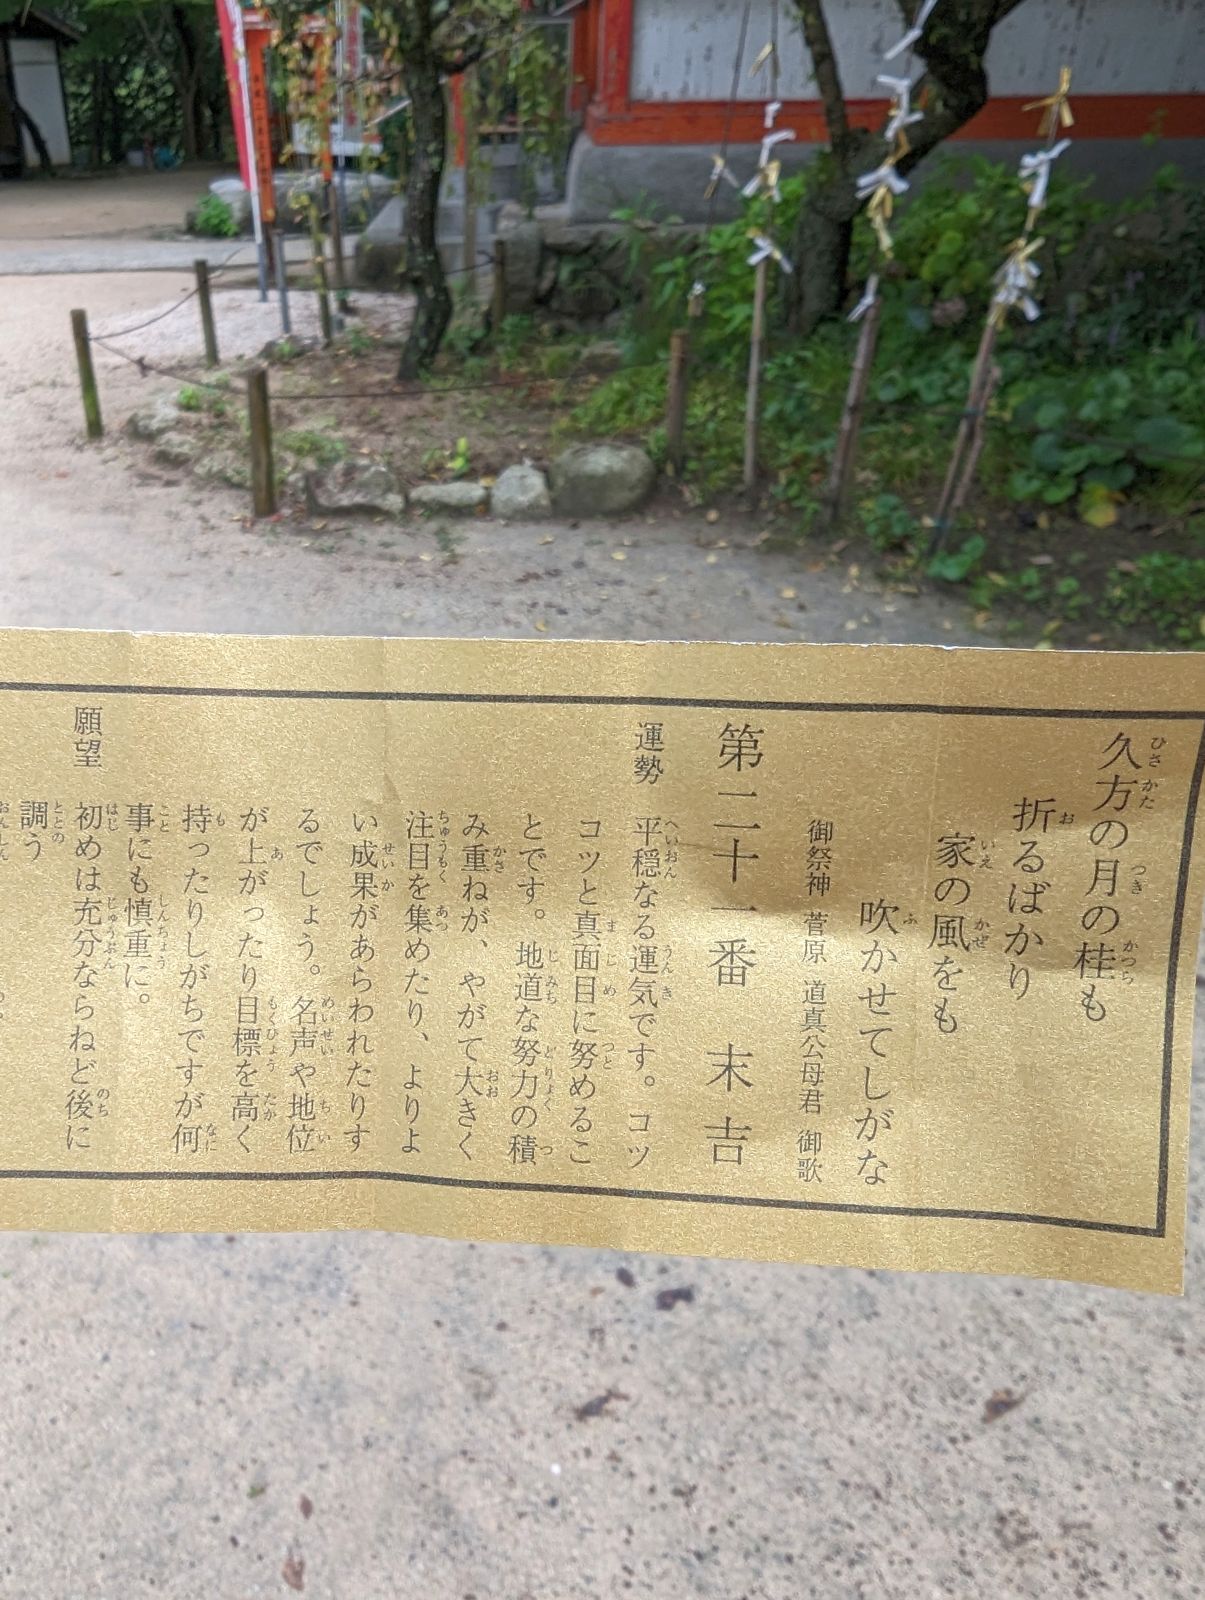 久方の月の桂も
折るばかり
家の風をも
吹かせてしがな
御祭神 菅原 道真公母君 御歌
第二十一番 末吉
運勢 平穏なる運気です。コツ
コツと真面目に努めるこ
とです。地道な努力の積
み重ねが、やがて大きく
注目を集めたり、よりよ
い成果があらわれたりす
るでしょう。名声や地位
が上がったり目標を高く
持ったりしがちですが何
事にも慎重に。
願望 初めは充分ならねど後に
調う